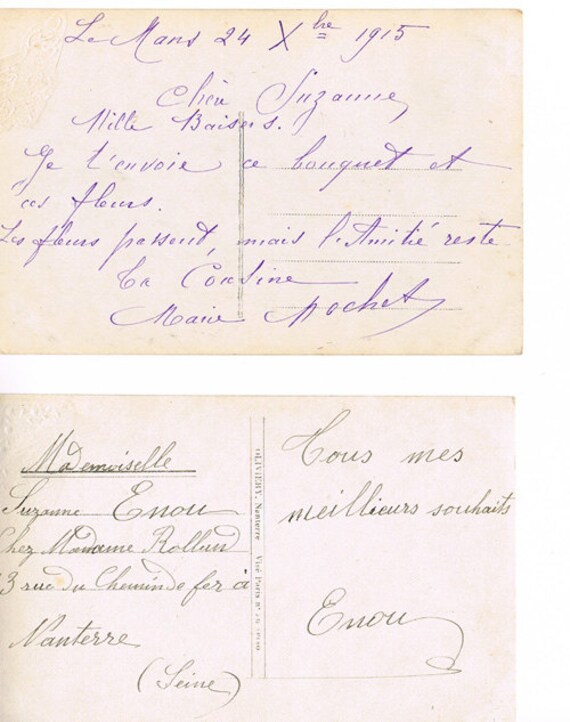 Le Mans 24 Xbre 1915
Chèr Suzanne,
Mille Baisers.
Je t'envoie ce bouquet et
ces fleurs.
Les fleurs passent, mais l'Amitié reste
Ta Cousine
Marie Pochet
Mademoiselle
Suzanne Enou
Chez Madame Rolland
3 rue du Chemin de fer à
Nanterre
(Seine)
OLIVIERY, Nanterre Visé Paris n°
Tous mes
meillieurs souhaits
Enou